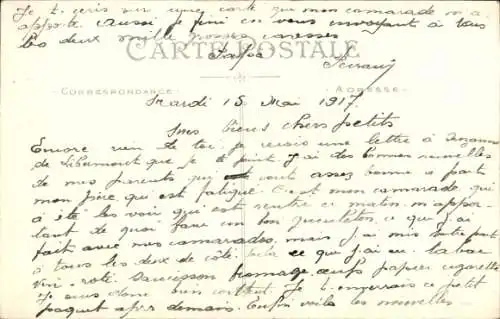 Je t. ecris sur une carte que mon camarade m a
apporté Aussi je fini en vous envoyant à tous
les deux mille grosses caresses
CARTE POSTALE
Papa
CORRESPONDANCE ADRESSE
Mardi 15 Mai 1917
Mes biens chers petits
Encore rien de toi je reçois une lettre à
de que je te joint J'ai des bonnes nouvelles
de mes parents qui sont assez bonne a part
mon père qui est fatigué C'est mon camarade qui
a été les voir qui est rentré ce matin m appor
tant de quoi faire un bon gueuleton ce que j'ai
fait avec mes camarades, mais j'ai mis votre part
à tous les deux de côté. ce que j'ai eu tabac
vin - roti saucisson fromage œufs papier cigarette
Je suis donc bien content Je t. enverrais ce petit
paquet après demain. Enfin voila les nouvelles